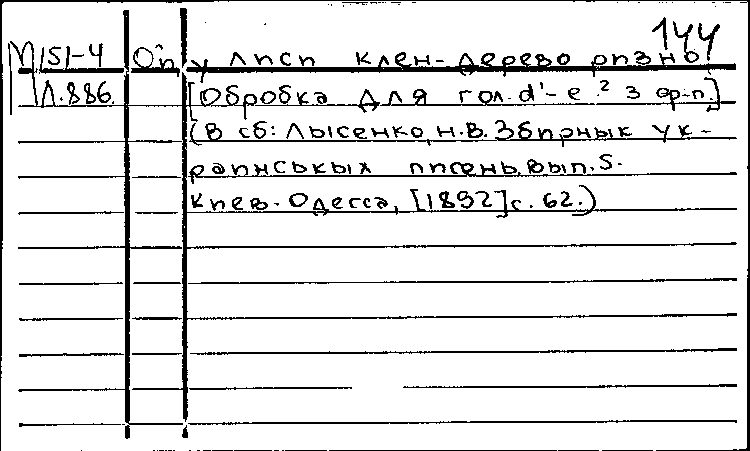 144
М 151-4 Ой у лисі клен-дерево різно.
Л.886. [Обробка для гол. d'-e.² з ф-п.]
(В сб: Лысенко, Н.В. Збирнык ук-
раинськых писень, вып. 5.
Киев-Одесса, [1892] с. 62.)